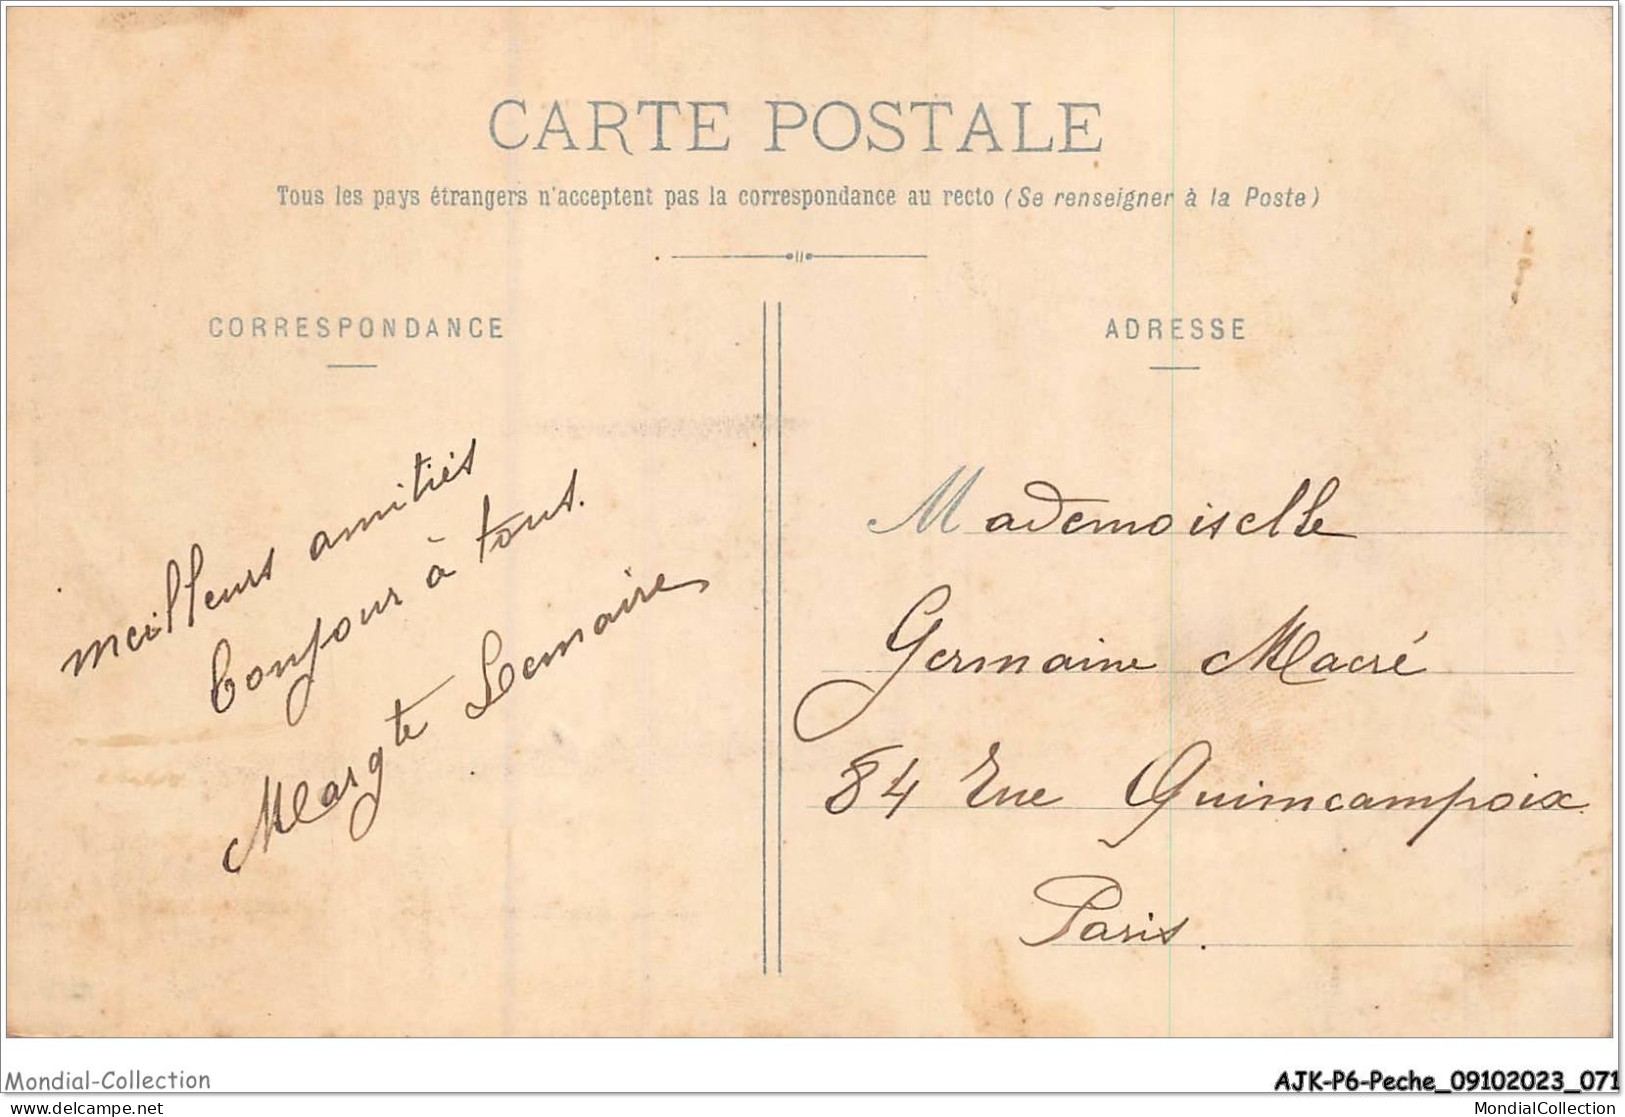 CARTE POSTALE
Tous les pays étrangers n'acceptent pas la correspondance au recto (Se renseigner à la Poste)
CORRESPONDANCE
meilleurs amitiés
bonjour à tous.
Margte Lemaire
ADRESSE
Mademoiselle
Germaine Macré
84 Rue Quimcampoix
Paris.
Mondial-Collection
delcampe.net
AJK-P6-Peche_09102023_071
MondialCollection